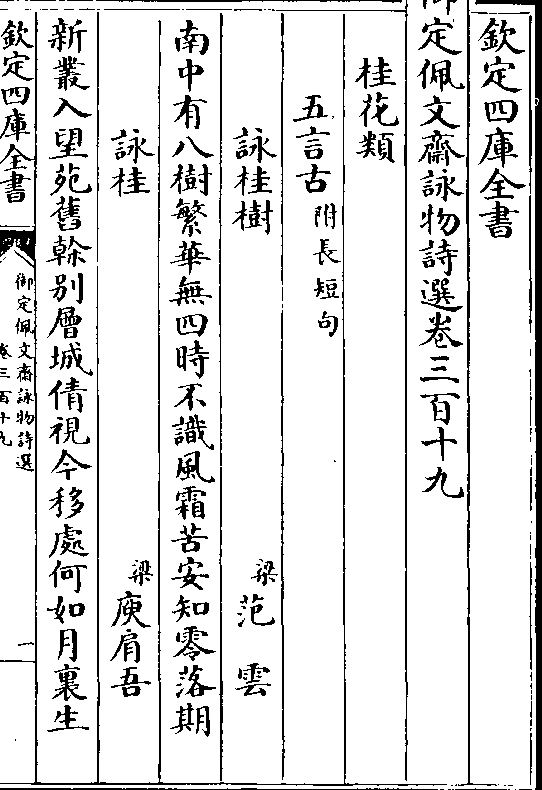 欽定四庫全書
御定佩文齋詠物詩選卷三百十九
桂花類
五言古附長短句
詠桂樹 梁范雲
南中有八樹繁華無四時不識風霜苦安知零落期
詠桂 梁庾肩吾
新叢入望苑舊榦别層城倩視今移處何如月裏生
欽定四庫全書
御定佩文齋詠物詩選
卷三百十九
一